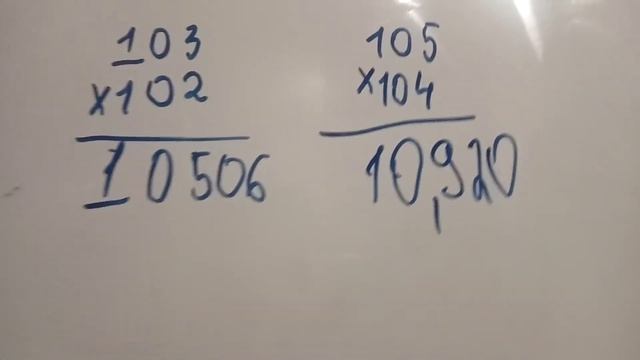 103
×102
10506
105
×104
10,920